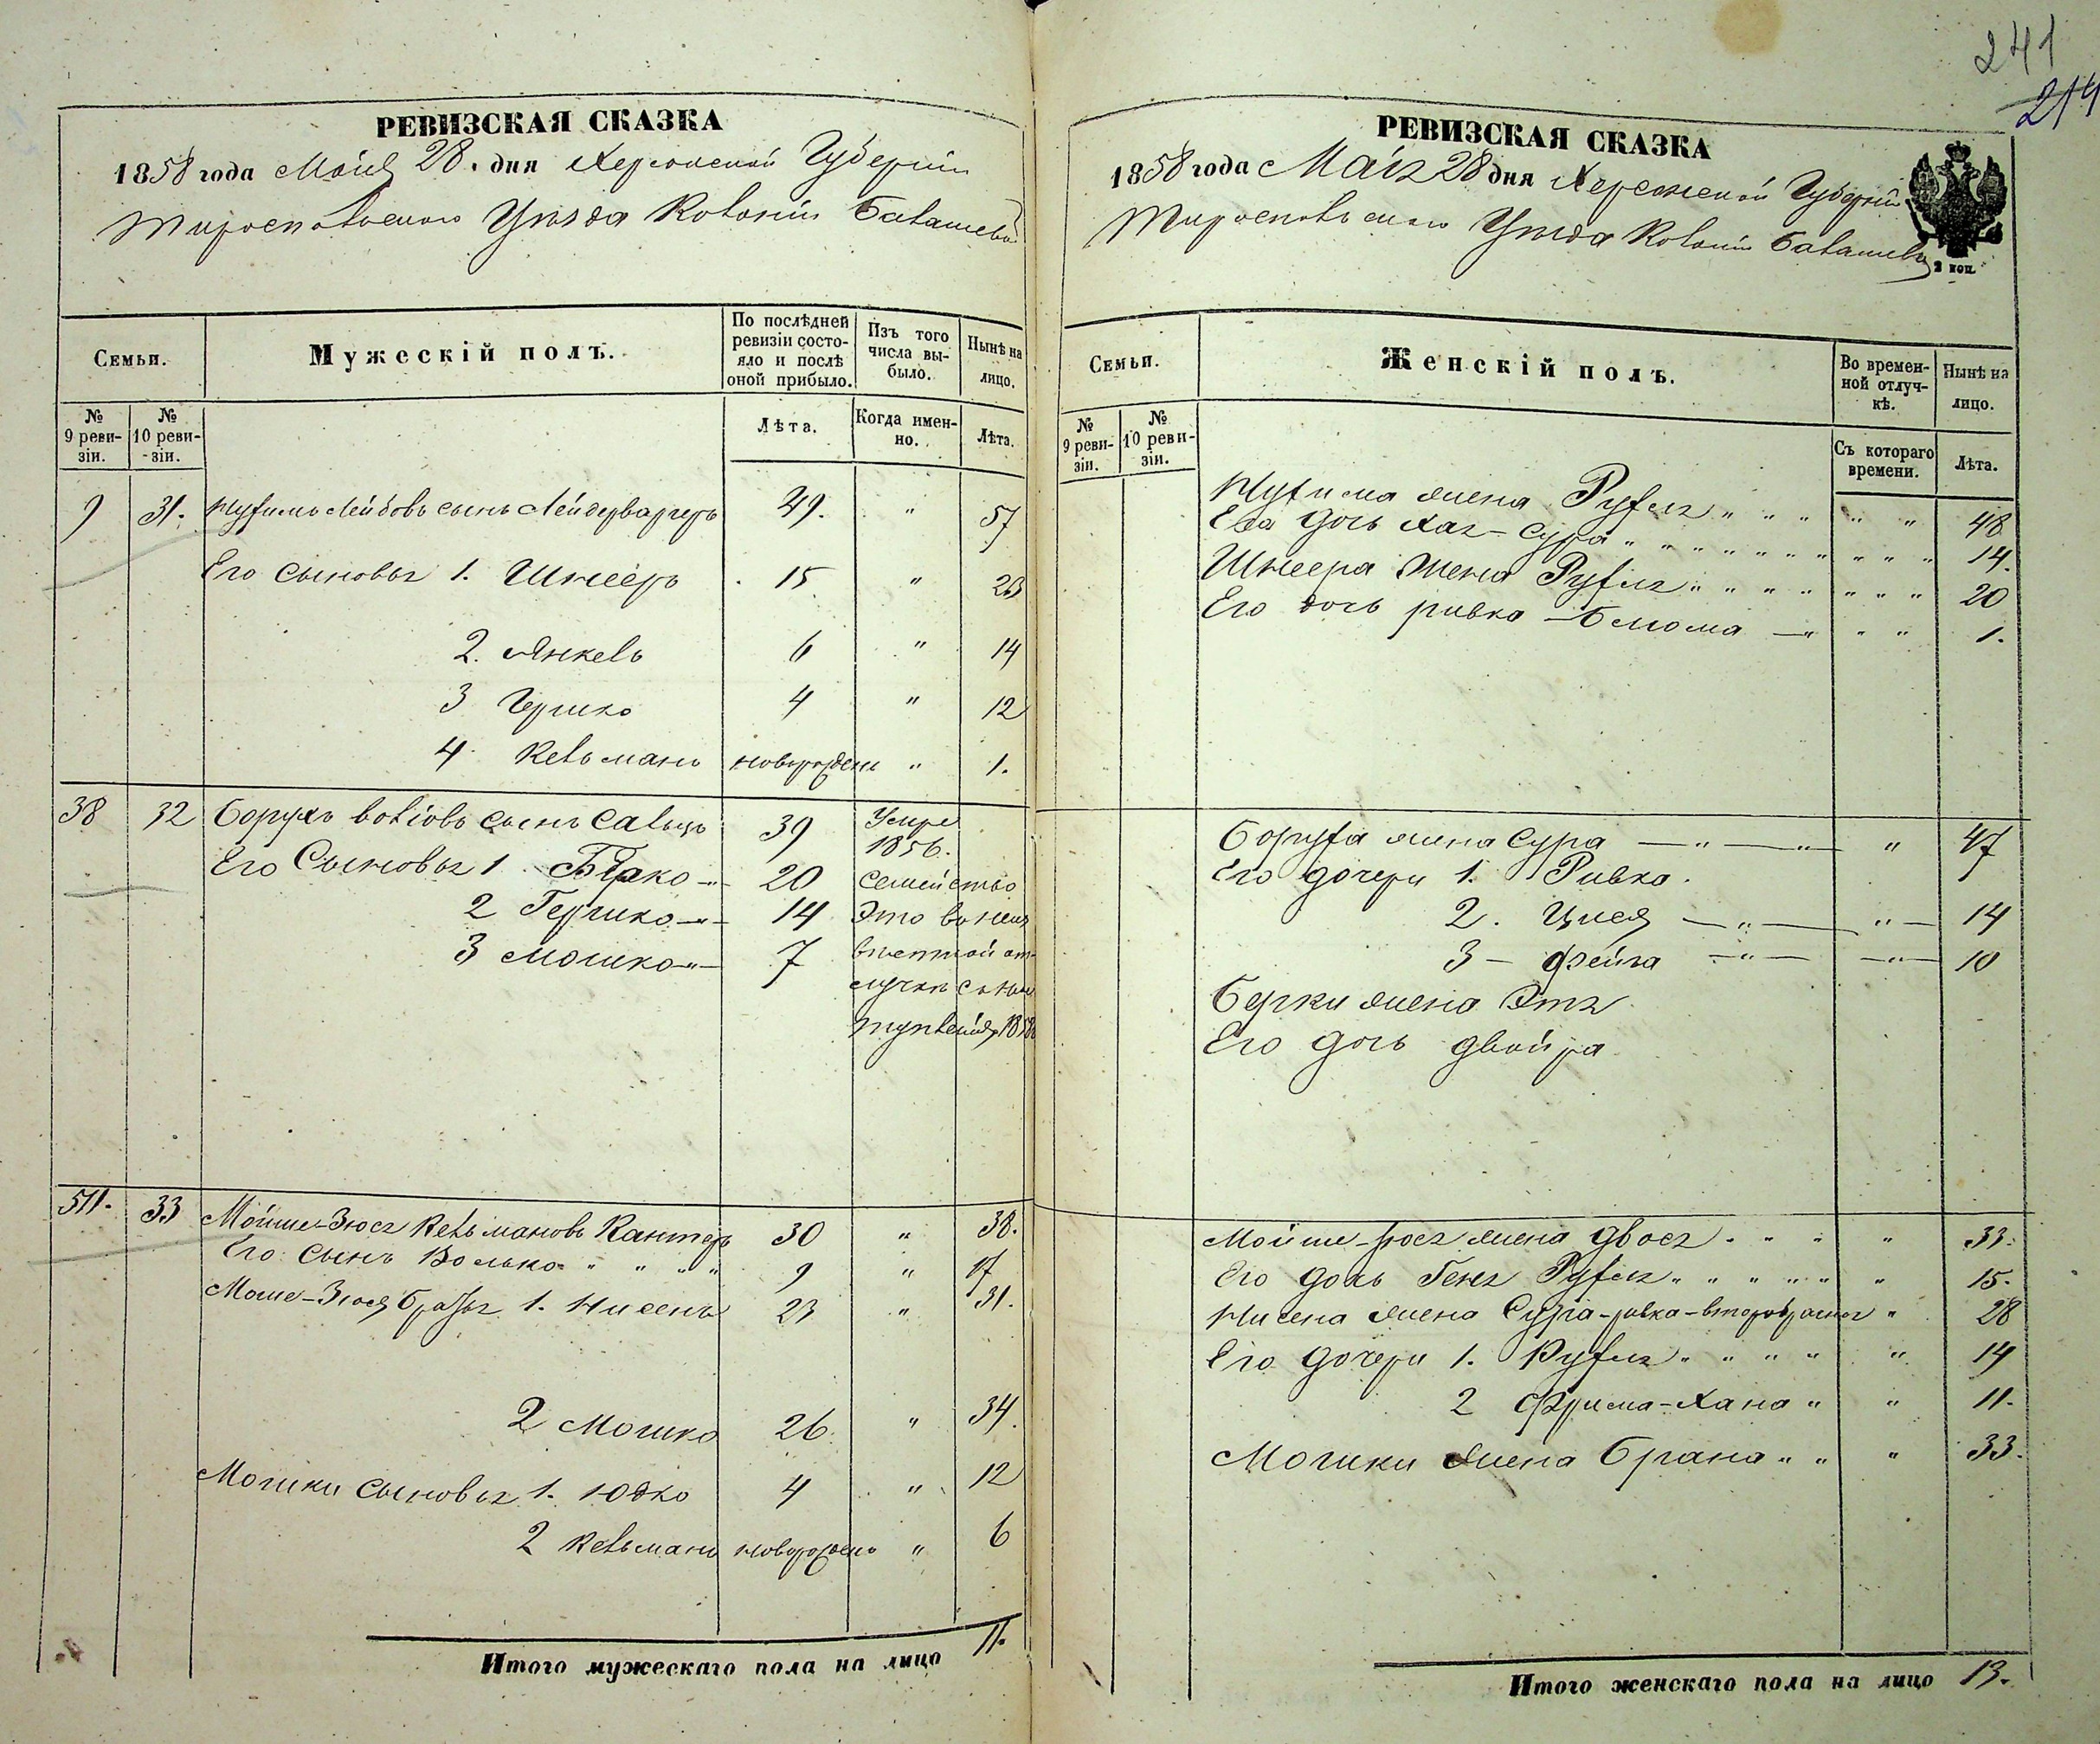 241
214
РЕВИЗСКАЯ СКАЗКА
1858 года Маія 28. дня Херсонской Губерніи
Тираспольского Уезда Колоніи
Семьи.
Мужескій полъ.
По послѣдней ревизіи состо-
яло и послѣ
оной прибыло.
Изъ того
числа вы-
было.
Нынѣ на
лицо.
№
9 реви-
зіи.
№
10 реви-
зіи.
Лѣта.
Когда имен-
но.
Лѣта.
9 31. Лейбовъ сынъ 49. " 57
Его сыновья 1. Шнееръ 15 " 23
2. Янкель 6 " 14
3 Гершко 4 " 12
4 Кельманъ новорожденъ " 1.
38 32 Борухъ сынъ 39 Умре
1856.
Его Сыновья 1 Берко -"- 20 семейство
2 Гершко -"- 14 Это
3 Мошко -"- 7 от-
лучке
1858
511. 33 Мойше-Зюся Кельмановъ Кантеръ 30 " 38.
Его сынъ Волько " " " " 9 " 17
Моше-Зюся братья 1. Нисенъ 23 " 31.
2 Мошко 26 " 34.
Мошки сыновья 1. Юдко 4 " 12
2 Кельманъ новорожденъ " 6
Итого мужескаго пола на лицо 11.
РЕВИЗСКАЯ СКАЗКА
1858 года Маія 28 дня Херсонской Губерніи
Тираспольского Уезда Колоніи
2 коп.
Семьи.
Женскій полъ.
Во времен-
ной отлуч-
кѣ.
Нынѣ на
лицо.
№
9 реви-
зіи.
№
10 реви-
зіи.
Съ котораго
времени.
Лѣта.
жена Рухля " " " " " 48
Его дочь Хая-Сура " " " " " " " " " " 14.
Шнеера жена Рухля " " " " " " " 20
Его дочь ривка - " " " 1.
Боруха жена Сура - " - " - " 47
Его дочери 1. Ривка.
2. - " - " - 14
3 - Фейга - " - - " - 10
Берки жена Этя
Его дочь двойра
Мойше-Зюся жена Двося " " " " 33.
Его дочь Геня Рухля " " " " " " 15.
Нисена жена Сура-ривка-второбрачная " 28
Его дочери 1. Рухля " " " " " 14
2 Фрима-Хана " " 11.
Мошки жена Брана " " " 33.
Итого женскаго пола на лицо 13.